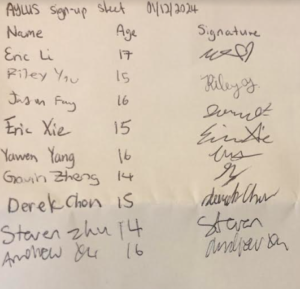 AYLUS sign-up sheet 01/12/2024
Name Age Signature
Eric Li 17
Riley You 15 Riley
Jason Fung 16
Eric Xie 15 Eric Xie
Yawen Yang 16
Gavin Zheng 14
Derek Chon 15 Derek Chon
Steven Zhu 14 Steven
Andrew 16 Andrew